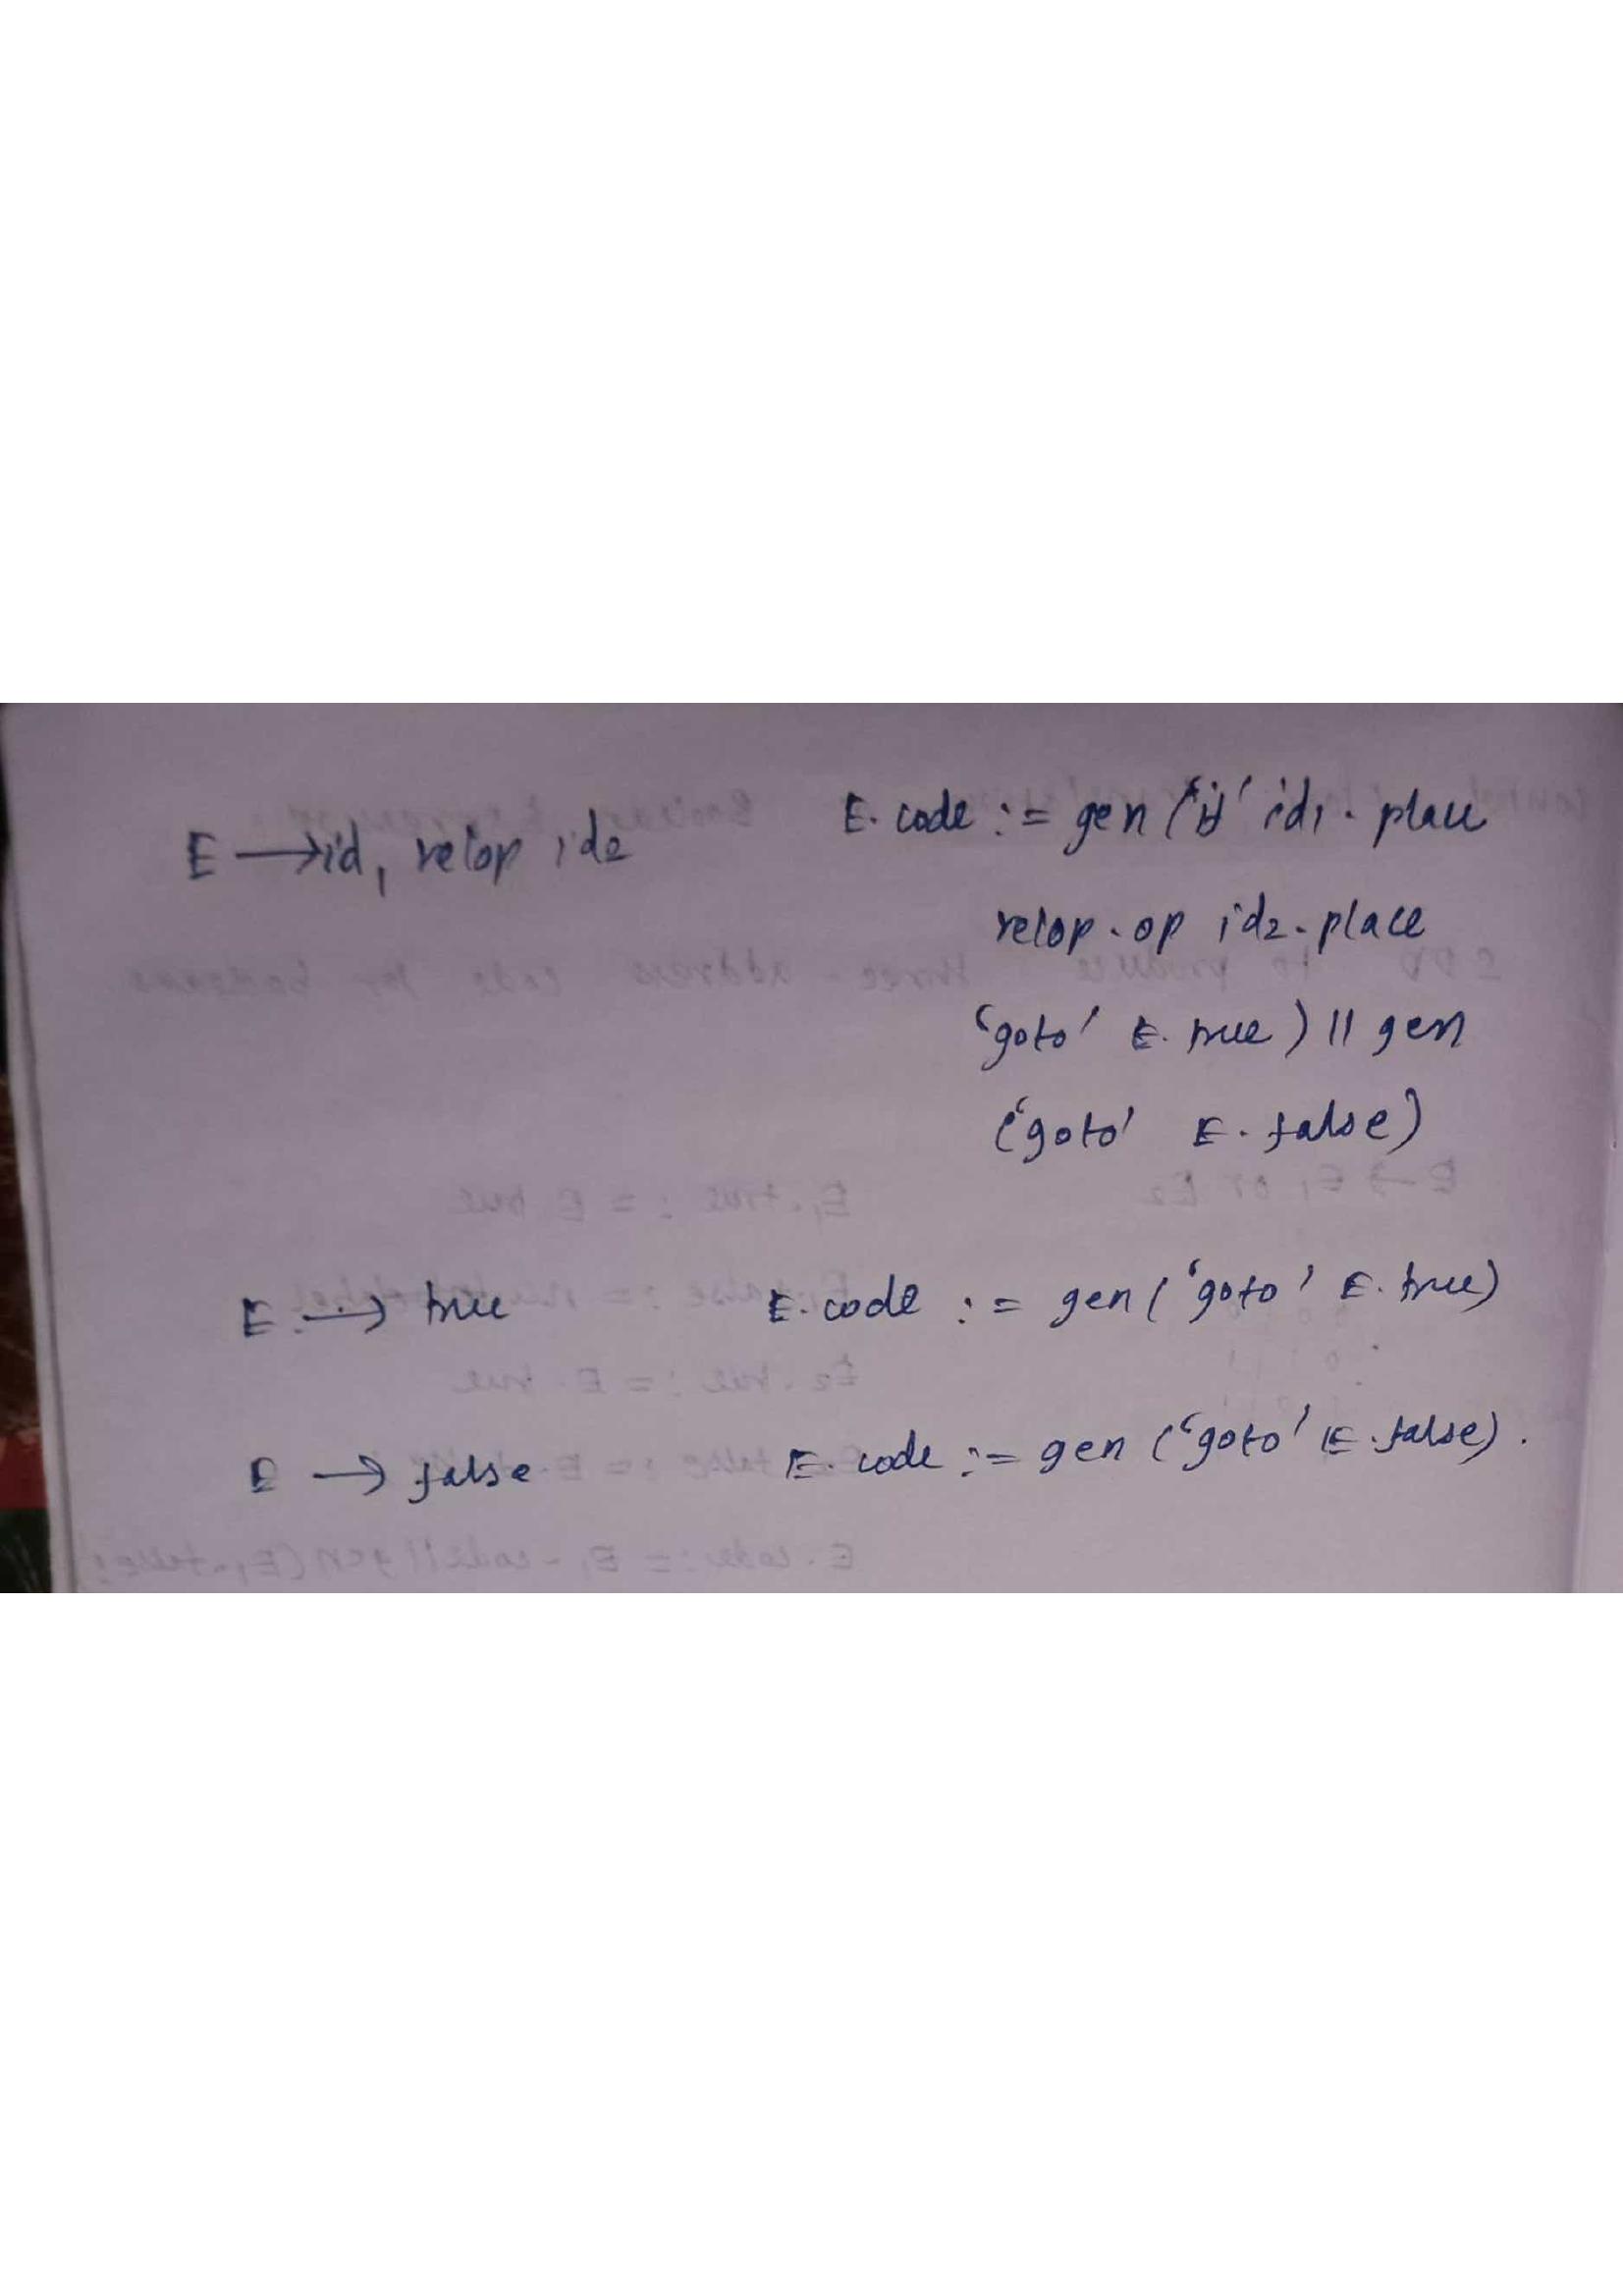 E → id1 relop id2 E.code := gen ('if' id1.place
relop.op id2.place
'goto' E.true) || gen
('goto' E.false)
E → true E.code := gen ('goto' E.true)
E → false E.code := gen ('goto' E.false).